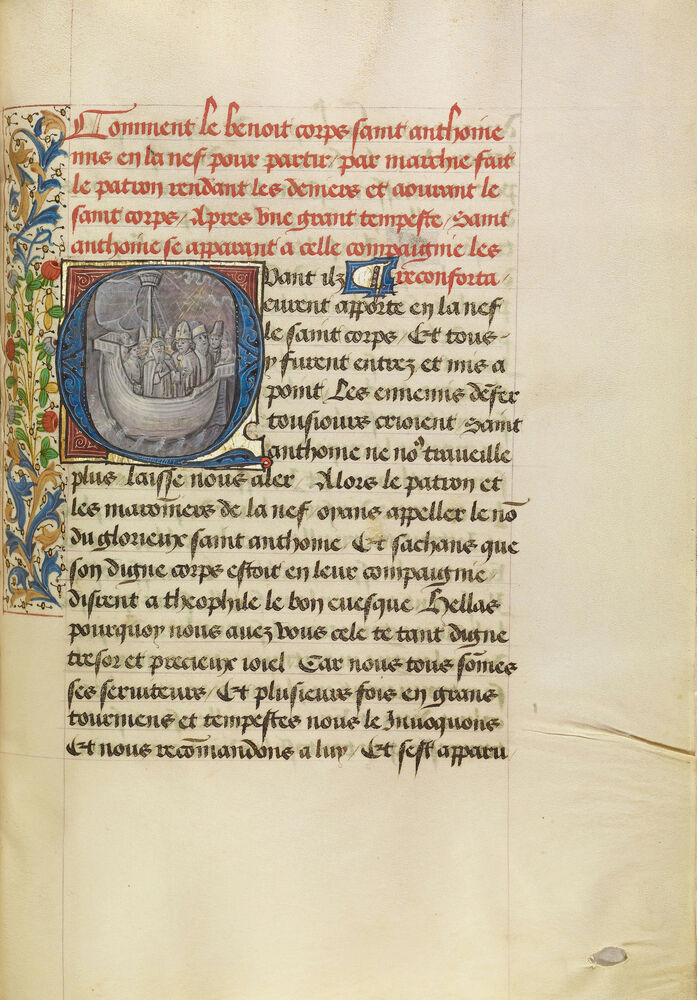 Comment le benoit corps saint anthoine
mis en la nef pour partir / par marchie fait
le patron rendant les deniers et aourant le
saint corps / Apres vne grant tempeste / Saint
anthoine se apparant a celle compaignie les
reconforta /
Quant ilz
eurent apporte en la nef
le saint corps / Et tous
y furent entrez et mis a
point Les ennemis denfer
tousiours crioient Saint
anthoine ne no9 traueille
plus / laisse nous aler / Alors le patron et
les maronniers de la nef oyans appeller le nō
du glorieux saint anthoine / Et sachans que
son digne corps estoit en leur compaignie /
dirent a theophile le bon euesque / Hellas
pourquoy nous auez vous cele te tant digne
tresor et precieux ioiel Car nous tous sōmes
ses seruiteurs / Et plusieurs fois en grans
tourmens et tempestes nous le Inuoquons
Et nous recōmandons a luy / Et sest apparu